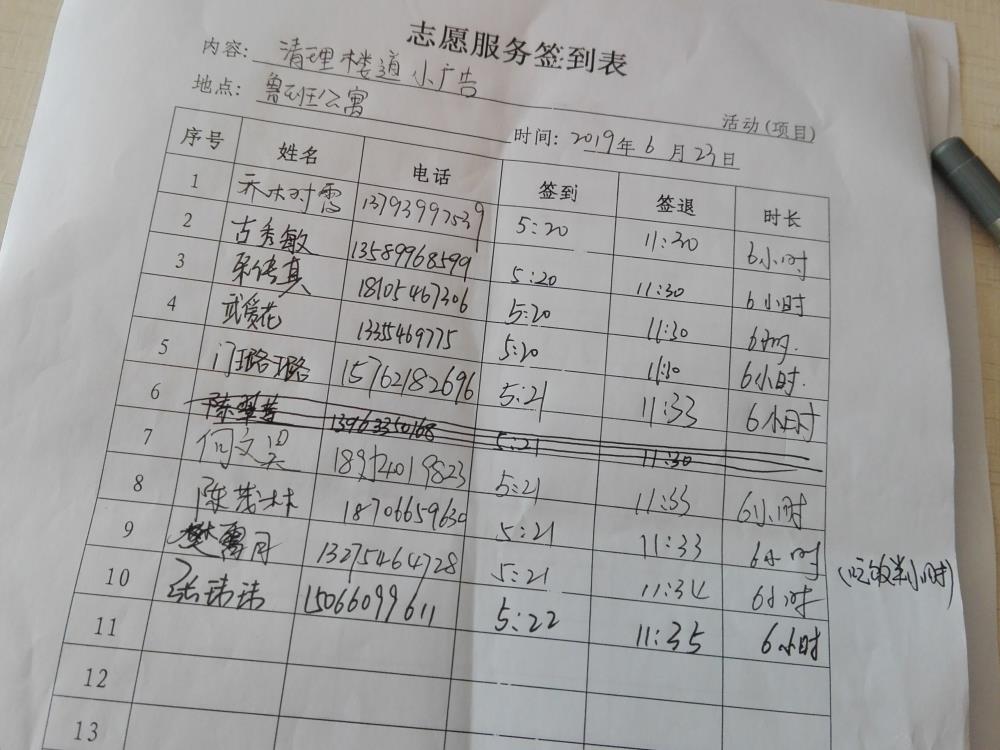 志愿服务签到表
内容: 清理楼道小广告 活动(项目)
地点: 鲁班公寓 时间: 2019年6月23日
序号 姓名 电话 签到 签退 时长
1 乔木对雪 13793997539 5:20 11:30 6小时
2 古秀敏 13589968599 5:20 11:30 6小时
3 18105467306 5:20 11:30
4 武爱花 1335469775 5:20 11:30 6小时.
5 门璐璐 15762182696 5:21 11:33 6小时
6 陈翠莲 13963350168 5:21 11:30
7 5:21 11:33 6小时
8 陈茂林 18706659630 5:21 11:33 6小时
9 樊雪月 13275464728 5:21 11:34 6小时 (吃饭半小时)
10 张玮玮 15066099611 5:22 11:35 6小时
11
12
13